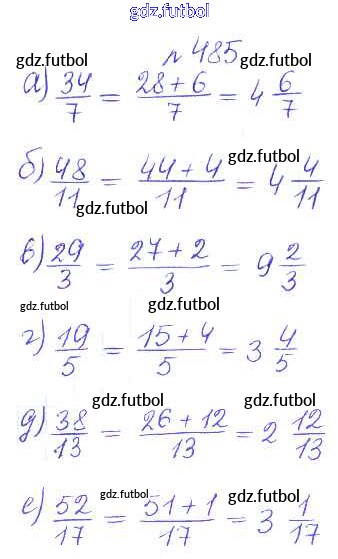 gdz.futbol
№ 485
gdz.futbol gdz.futbol
а) 34/7 = 28+6/7 = 4 6/7
gdz.futbol
б) 48/11 = 44+4/11 = 4 4/11
gdz.futbol
в) 29/3 = 27+2/3 = 9 2/3
gdz.futbol gdz.futbol
г) 19/5 = 15+4/5 = 3 4/5
gdz.futbol gdz.futbol
д) 38/13 = 26+12/13 = 2 12/13
gdz.futbol gdz.futbol
е) 52/17 = 51+1/17 = 3 1/17